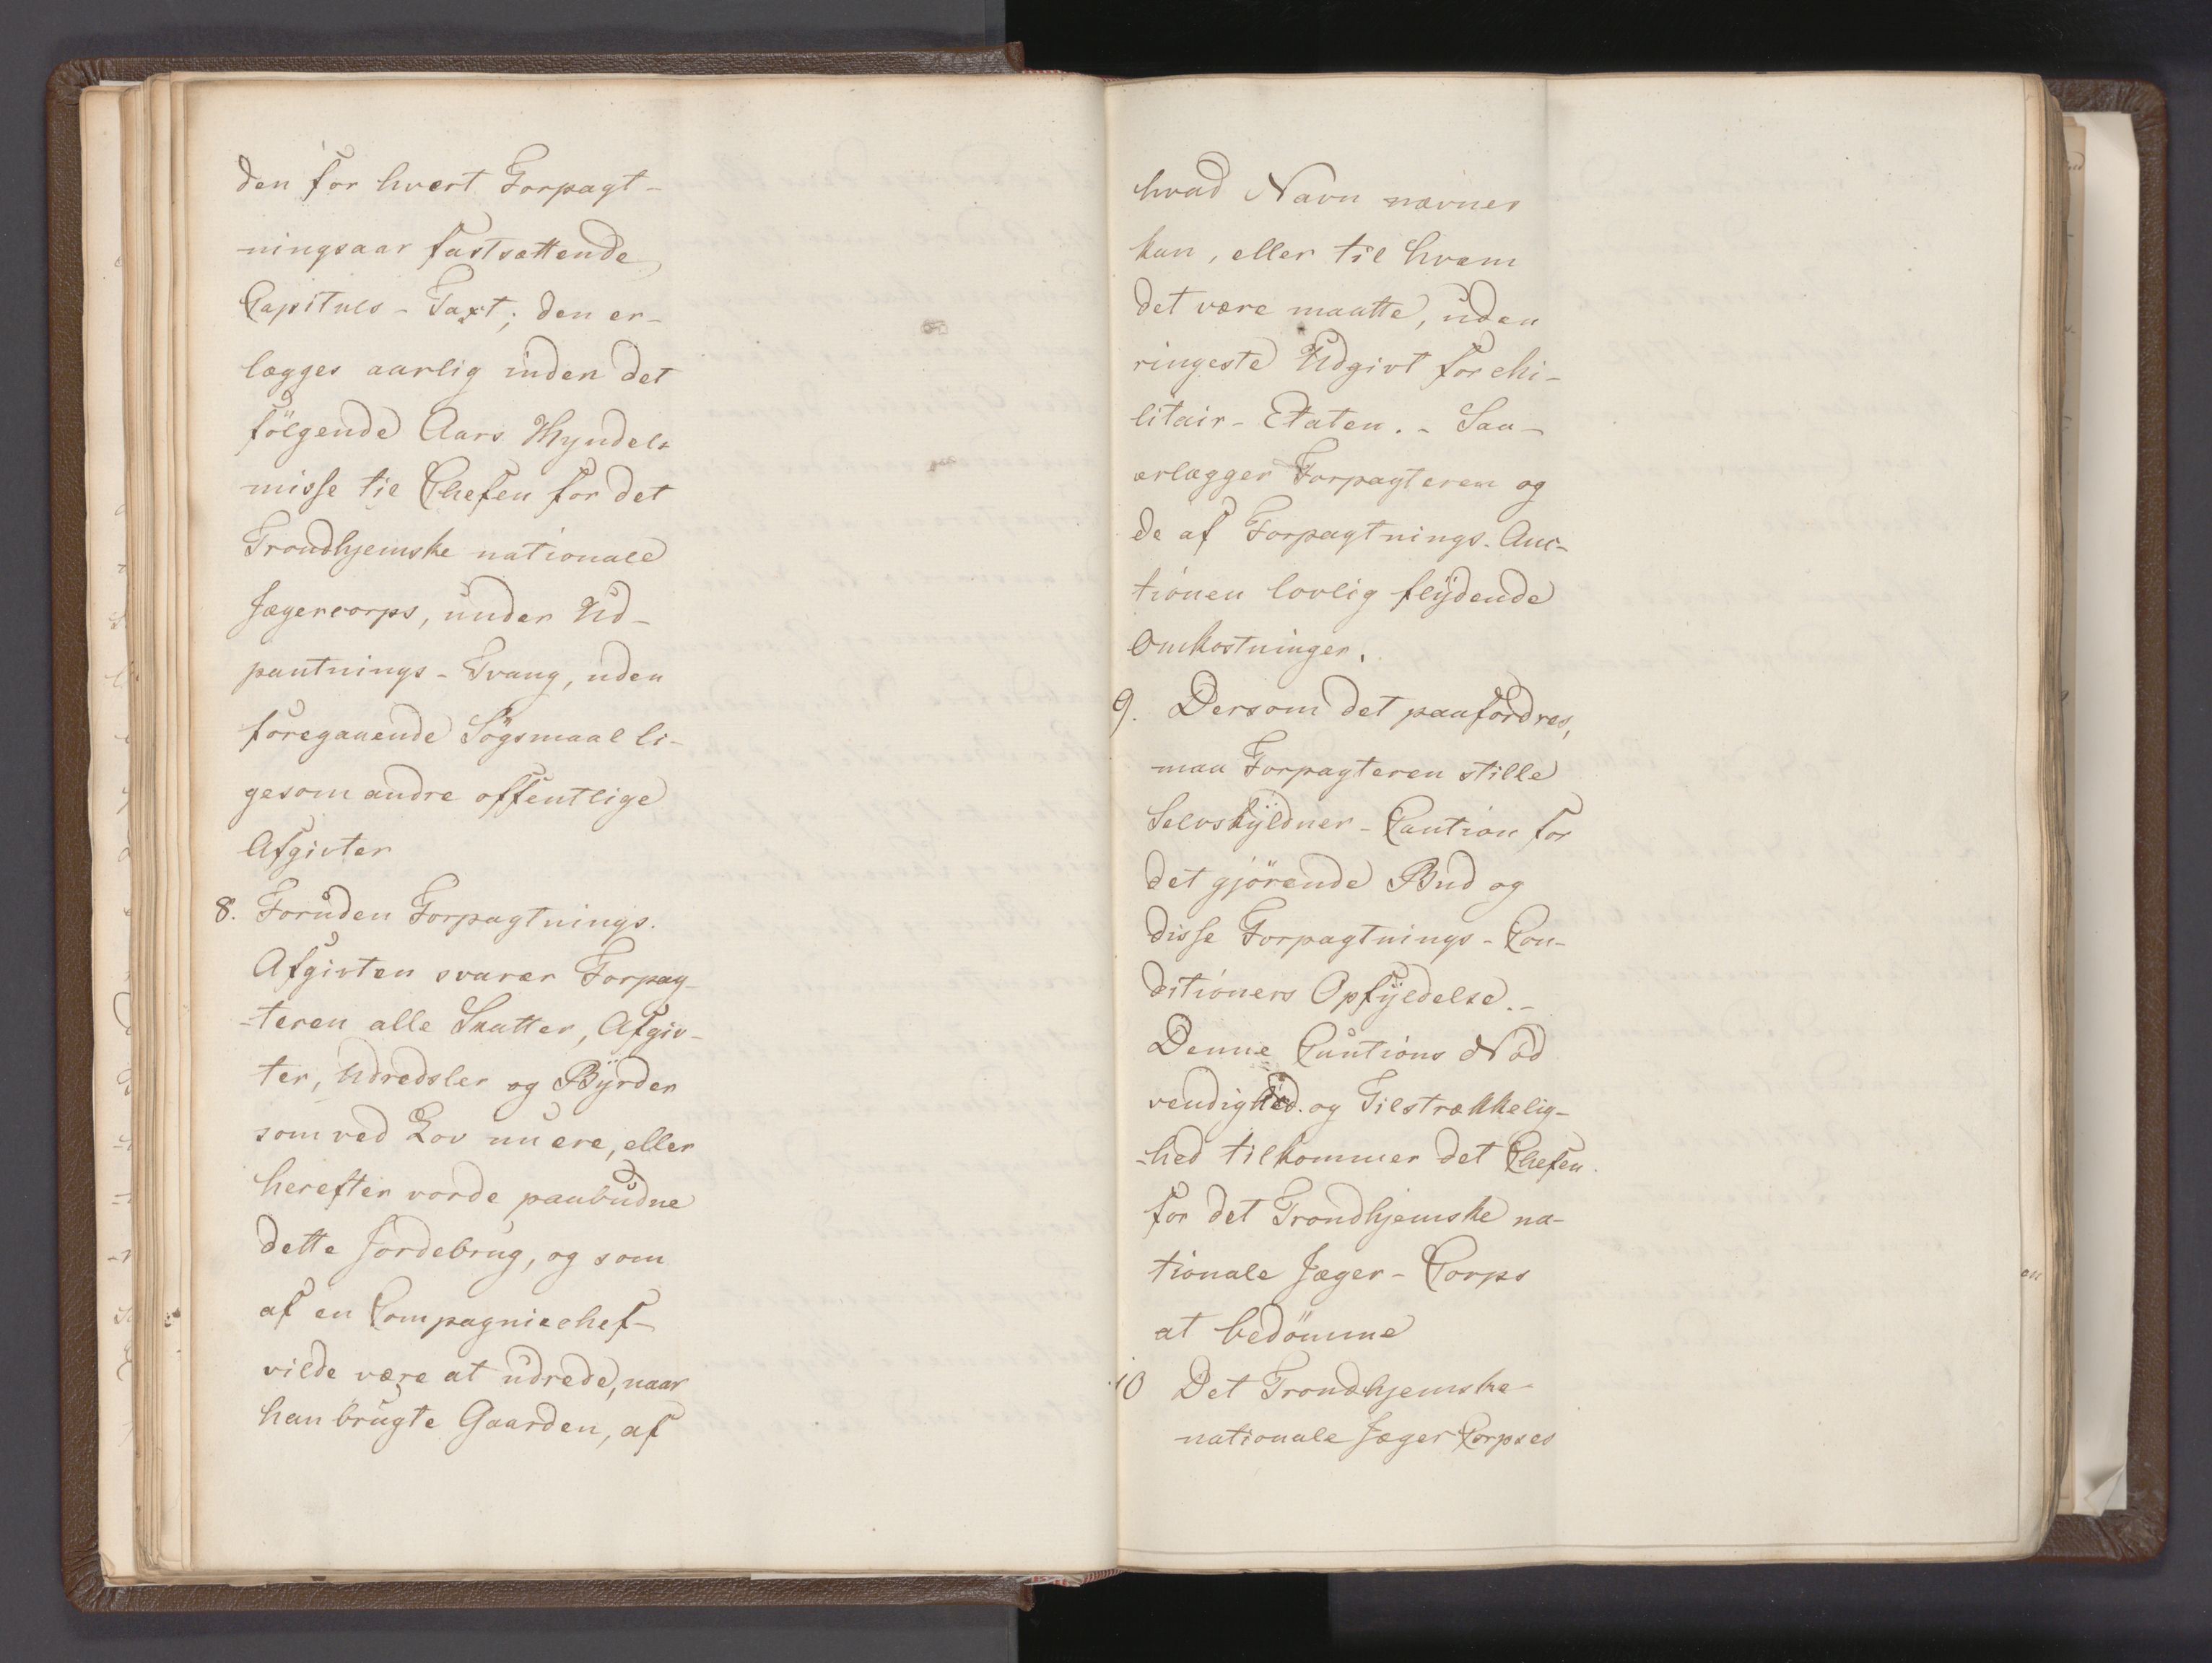 den for hvert Forpagt-
-ningsaar fastsættende
Capituls-Taxt; den er-
lægges aarlig inden det
fölgende Aars Kyndels
misse til Chefen for det
Trondhjemske nationale
Jægercorps, under Ud-
pantnings-Tvang, uden
foregaaende Sögsmaal li-
gesom andre offentlige
Afgivter
8. Foruden Forpagtnings.
Afgivten svarer Forpag-
-teren alle Skatter, Afgiv-
ter, Udredsler og Byrder
som ved Lov nu ere, eller
herefter vorde paabudne
dette Jordebrug, og som
af en Compagniechef-
vilde være at udrede, naar
han brugte Gaarden, af
hvad Navn nævnes
kan, eller til hvem
det være maatte, uden
ringeste Udgivt for Mi-
litair-Etaten. - Saa-
erlægger Forpagteren og
de af Forpagtnings-Auc-
tionen lovlig flydende
Omkostninger.
9. Dersom det paafordres,
maa Forpagteren stille
Selvskyldner-Caution for
det gjörende Bud og
disse Forpagtnings-Con-
ditioners Opfyldelse.-
Denne Cautions Nöd
vendighed og Tilstrækkelig-
-hed tilkommer det Chefen
for det Trondhjemske na-
tionale Jæger-Corps
at bedömme
10 Det Trondhjemske-
nationale Jæger Corpses